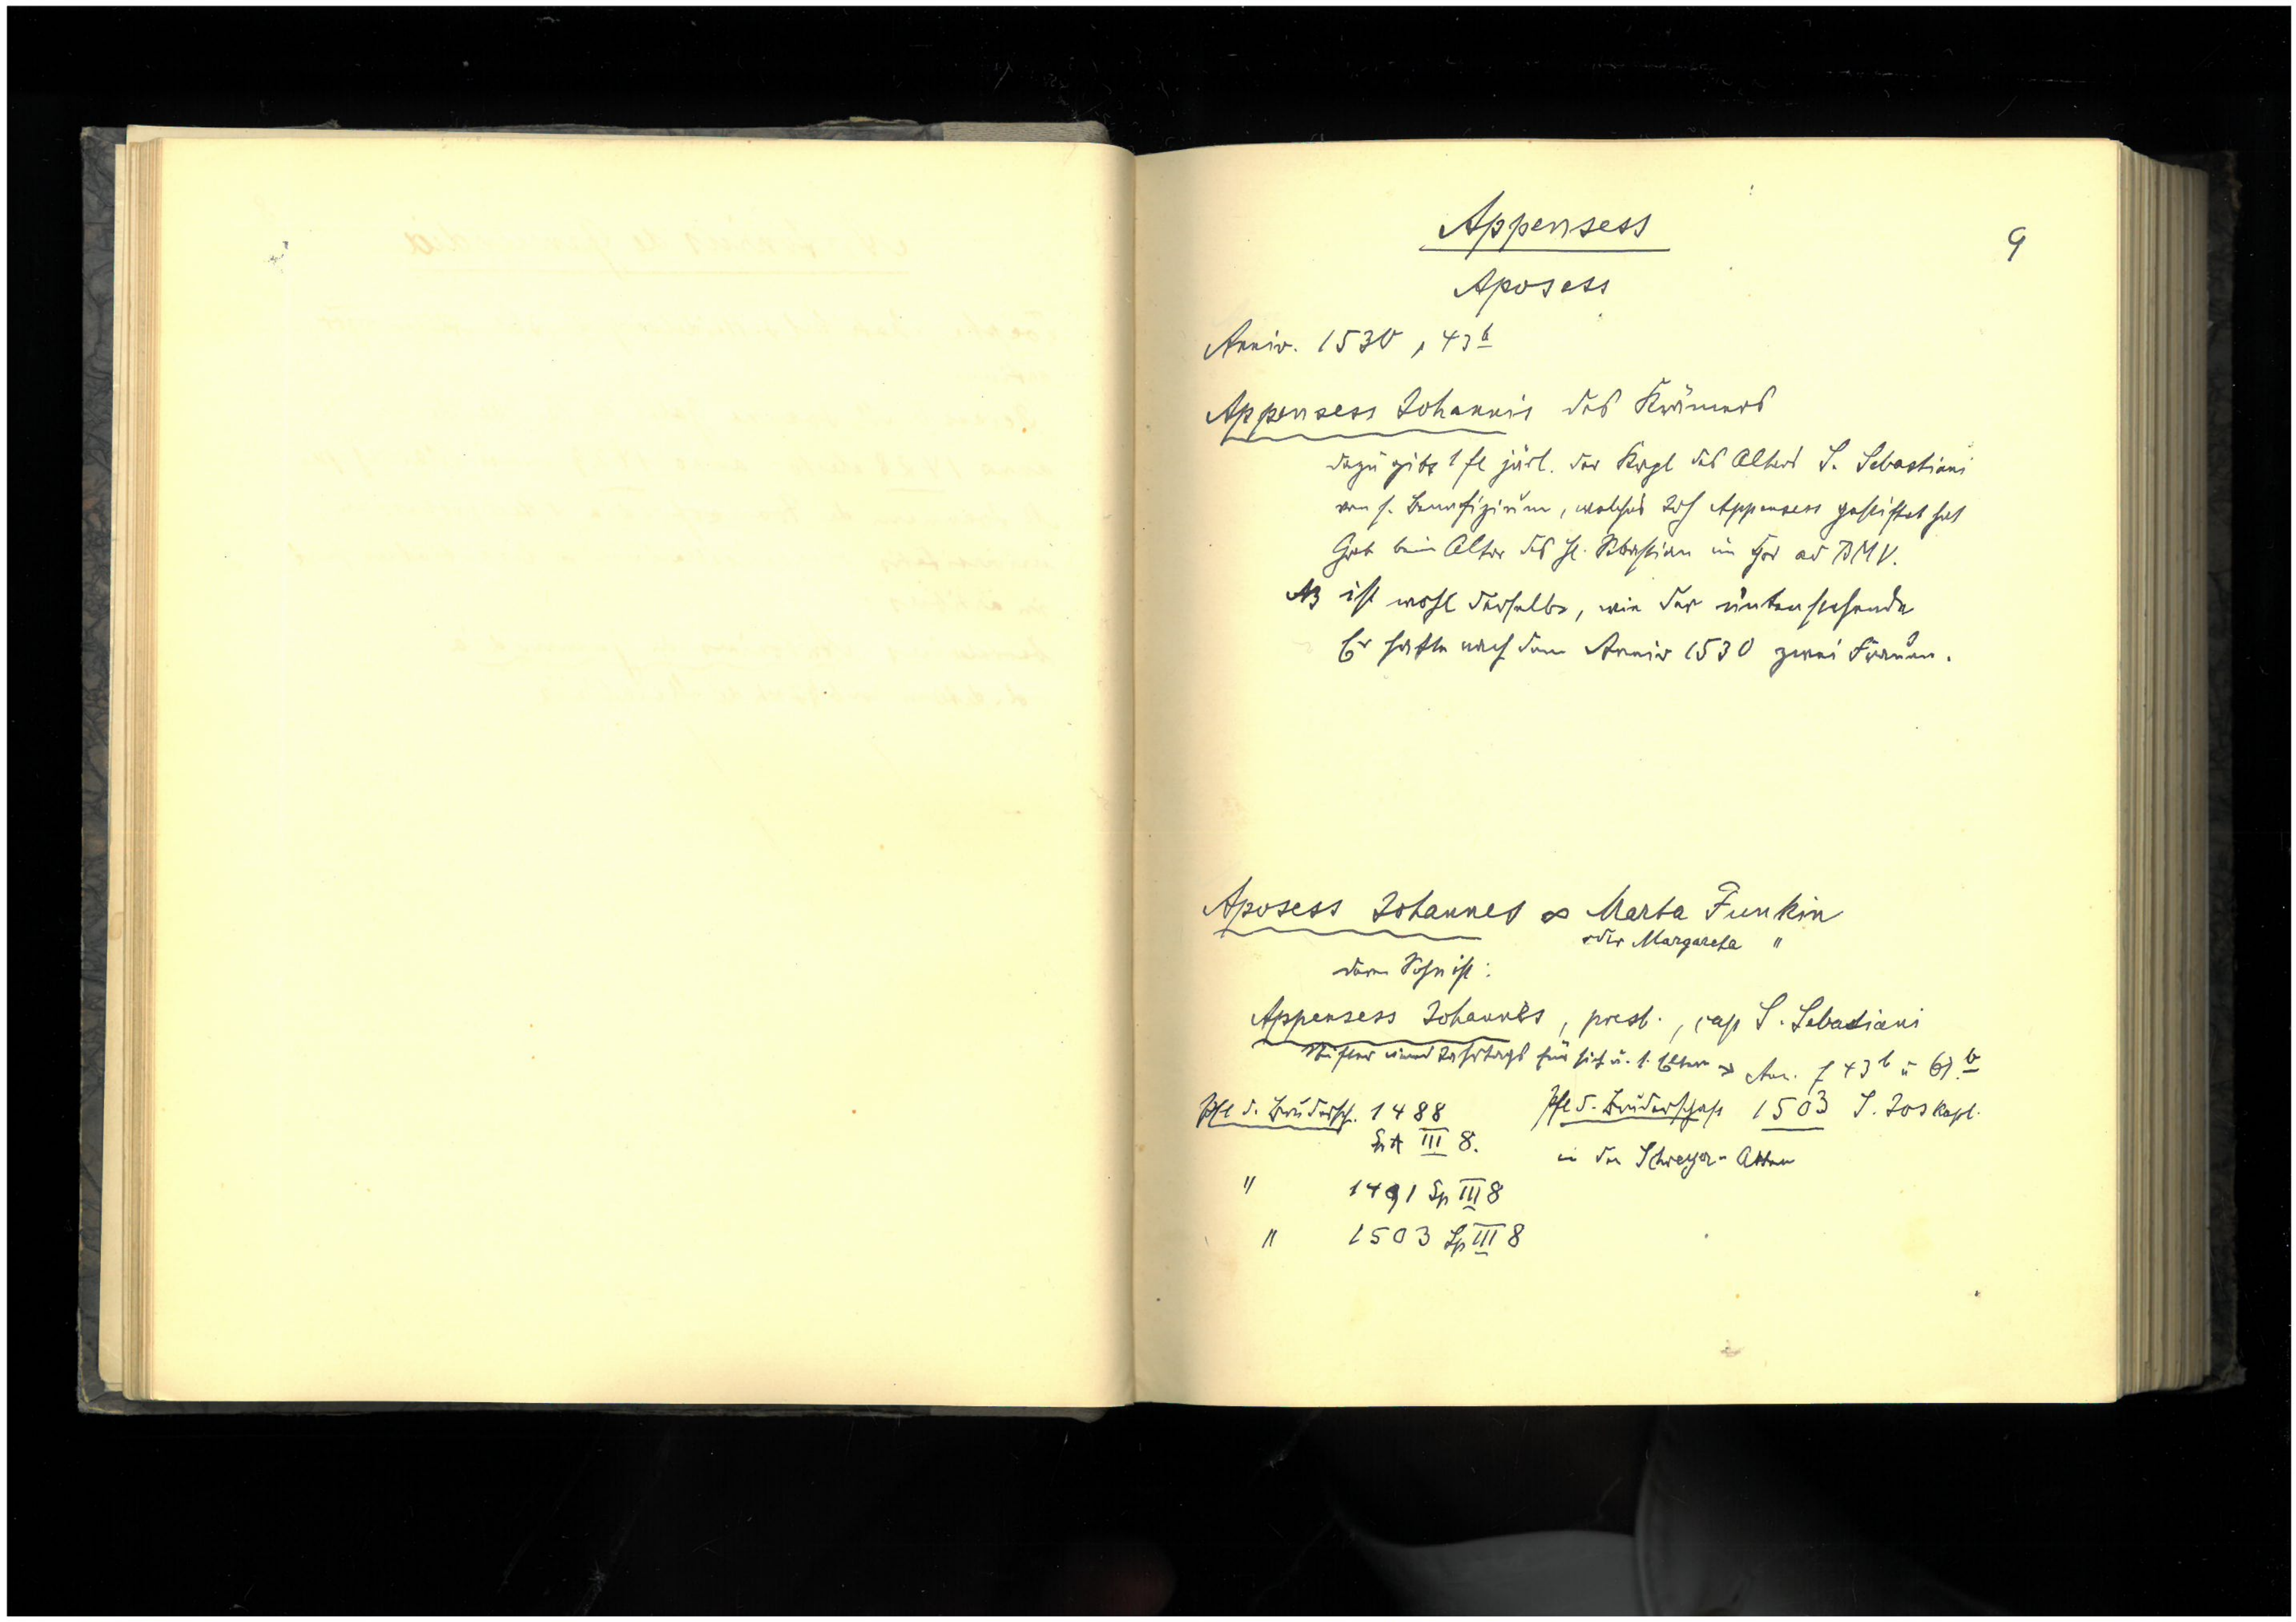 9
Appensess
Aposess
Anniv. 1530, 43 b
Appensess Johannis des Krämers
dazu gibt 1 fl järl. der Kapl des Altars S. Sebastiani
von s. Benefizium, welches Joh Appensess gestiftet hat
Grab beim Altar des hl. Sebastian im Chor ad BMV.
NB ist wohl derselbe, wie der untenstehende
Er hatte nach dem Anniv 1530 zwei Frauen.
Aposess Johannes ∞ Marta Funkin
oder Margareta "
deren Sohn ist:
Appensess Johannes, presb., cap S. Sebastiani
Stifter eines Jahrtags für sich u. s. Eltern → An. f 43 b u 61 b
Pfl d. Brudersch. 1488
III 8.
Pfl d. Bruderschaft 1503 S. Jos kapl.
in den Schreyer-Akten
" 1491 Sp III 8
" 1503 Sp III 8